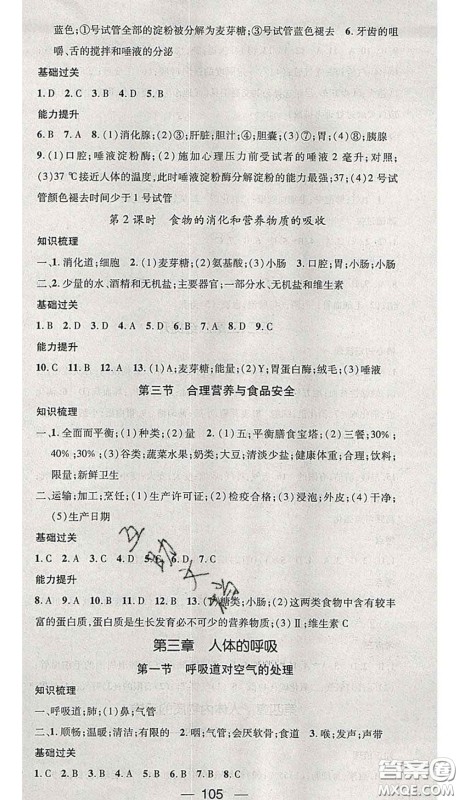 蓝色;①号试管全部的淀粉被分解为麦芽糖;③号试管蓝色褪去 6. 牙齿的咀
嚼、舌的搅拌和唾液的分泌
基础过关
1. D 2. C 3. D 4. D 5. B
能力提升
6. B 7. A 8. (1)消化腺;(2)③;肝脏;胆汁;④;胆囊;(3)⑦;胃;(4)⑧;胰腺
9. (1)口腔;唾液淀粉酶;(2)施加心理压力前受试者的唾液2毫升;对照;
(3)37 ℃接近人体的温度,此时唾液淀粉酶分解淀粉的能力最强;37;(4)2号试
管颜色褪去时间少于1号试管
第2课时 食物的消化和营养物质的吸收
知识梳理
一、1. 消化道;细胞 2. (1)麦芽糖;(2)氨基酸;(3)小肠 3. 口腔;胃;小肠;小肠
二、2. 少量的水、酒精和无机盐;主要器官;一部分水、无机盐和维生素
基础过关
1. B 2. C 3. D 4. D 5. D 6. D 7. B 8. D 9. C
能力提升
10. C 11. B 12. A 13. (1)A;麦芽糖;能量;(2)Y;胃蛋白酶;绒毛;(3)唾液
第三节 合理营养与食品安全
知识梳理
一、1. 全面而平衡;(1)种类;(2)量 2. (1)五;平衡膳食宝塔;(2)三餐;30%;
40%;30%;(3)谷类;蔬菜水果;奶类;大豆;清淡少盐;健康体重;合理;饮料;
限量;新鲜卫生
二、运输;加工;烹饪;(1)生产许可证;(2)检疫合格;(3)浸泡;外皮;(4)干净;
(5)生产日期
基础过关
1. C 2. A 3. C 4. D 5. C 6. D 7. C
能力提升
8. A 9. A 10. B 11. D 12. B 13. (1)糖类;小肠;(2)这两类食物中含有较丰
富的蛋白质,蛋白质是生长发育必不可少的营养物质;(3)Ⅱ;维生素C
第三章 人体的呼吸
第一节 呼吸道对空气的处理
知识梳理
一、呼吸道;肺;(1)鼻;气管
二、1. 顺畅;温暖;清洁;有限的 2. 咽;气管;会厌软骨;食道 3. 喉;发声;声带
基础过关
1. D 2. C 3. B 4. A 5. D 6. D 7. C 8. B 9. C
105
互助文学
答案圈
MXQE.COM